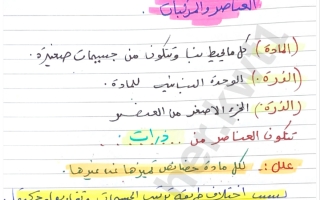 العناصر والمركبات
(المادة) كل ما يحيط بنا وتتكون من جسيمات صغيرة.
(الذرة) الوحدة البنائية للمادة.
(الذرة) الجزء الأصغر من العنصر
تتكون العناصر من ..ذرات..
علل :. لكل مادة خصائص تميزها عن غيرها.
بسبب اختلاف طريقة ترتيب الجسيمات